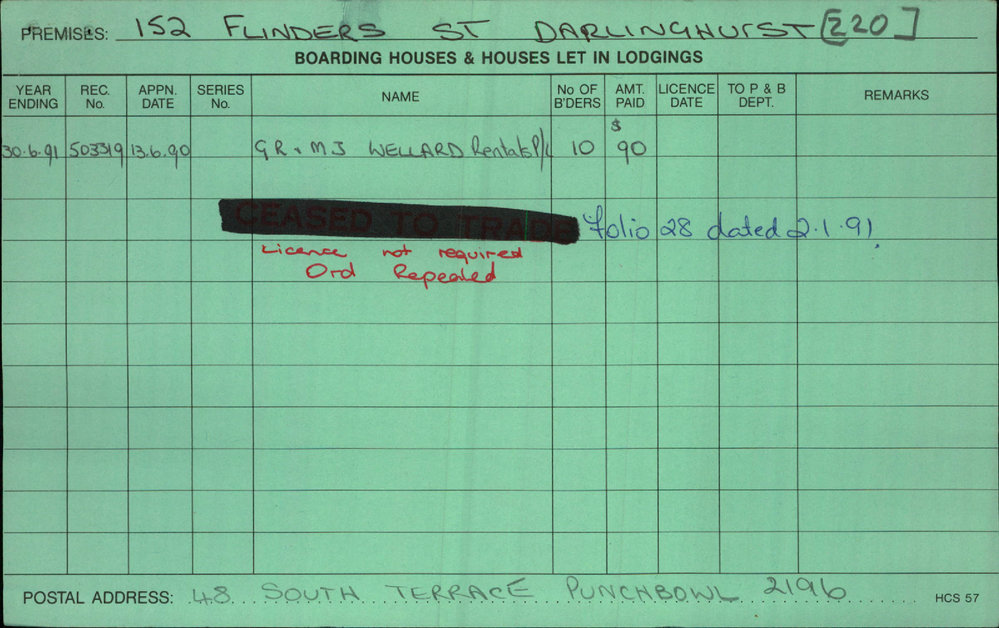 PREMISES: 152 FLINDERS ST DARLINGHURST [220]
BOARDING HOUSES & HOUSES LET IN LODGINGS
YEAR ENDING REC. No. APPN. DATE SERIES No. NAME No OF B'DERS AMT. PAID LICENCE DATE TO P & B DEPT. REMARKS
30.6.91 503319 13.6.90 G R & M J WELLARD Rentals P/L 10 $ 90
CEASED TO TRADE Folio 28 dated 2.1.91.
Licence not required
Ord Repealed
POSTAL ADDRESS: 48 SOUTH TERRACE PUNCHBOWL 2196 HCS 57